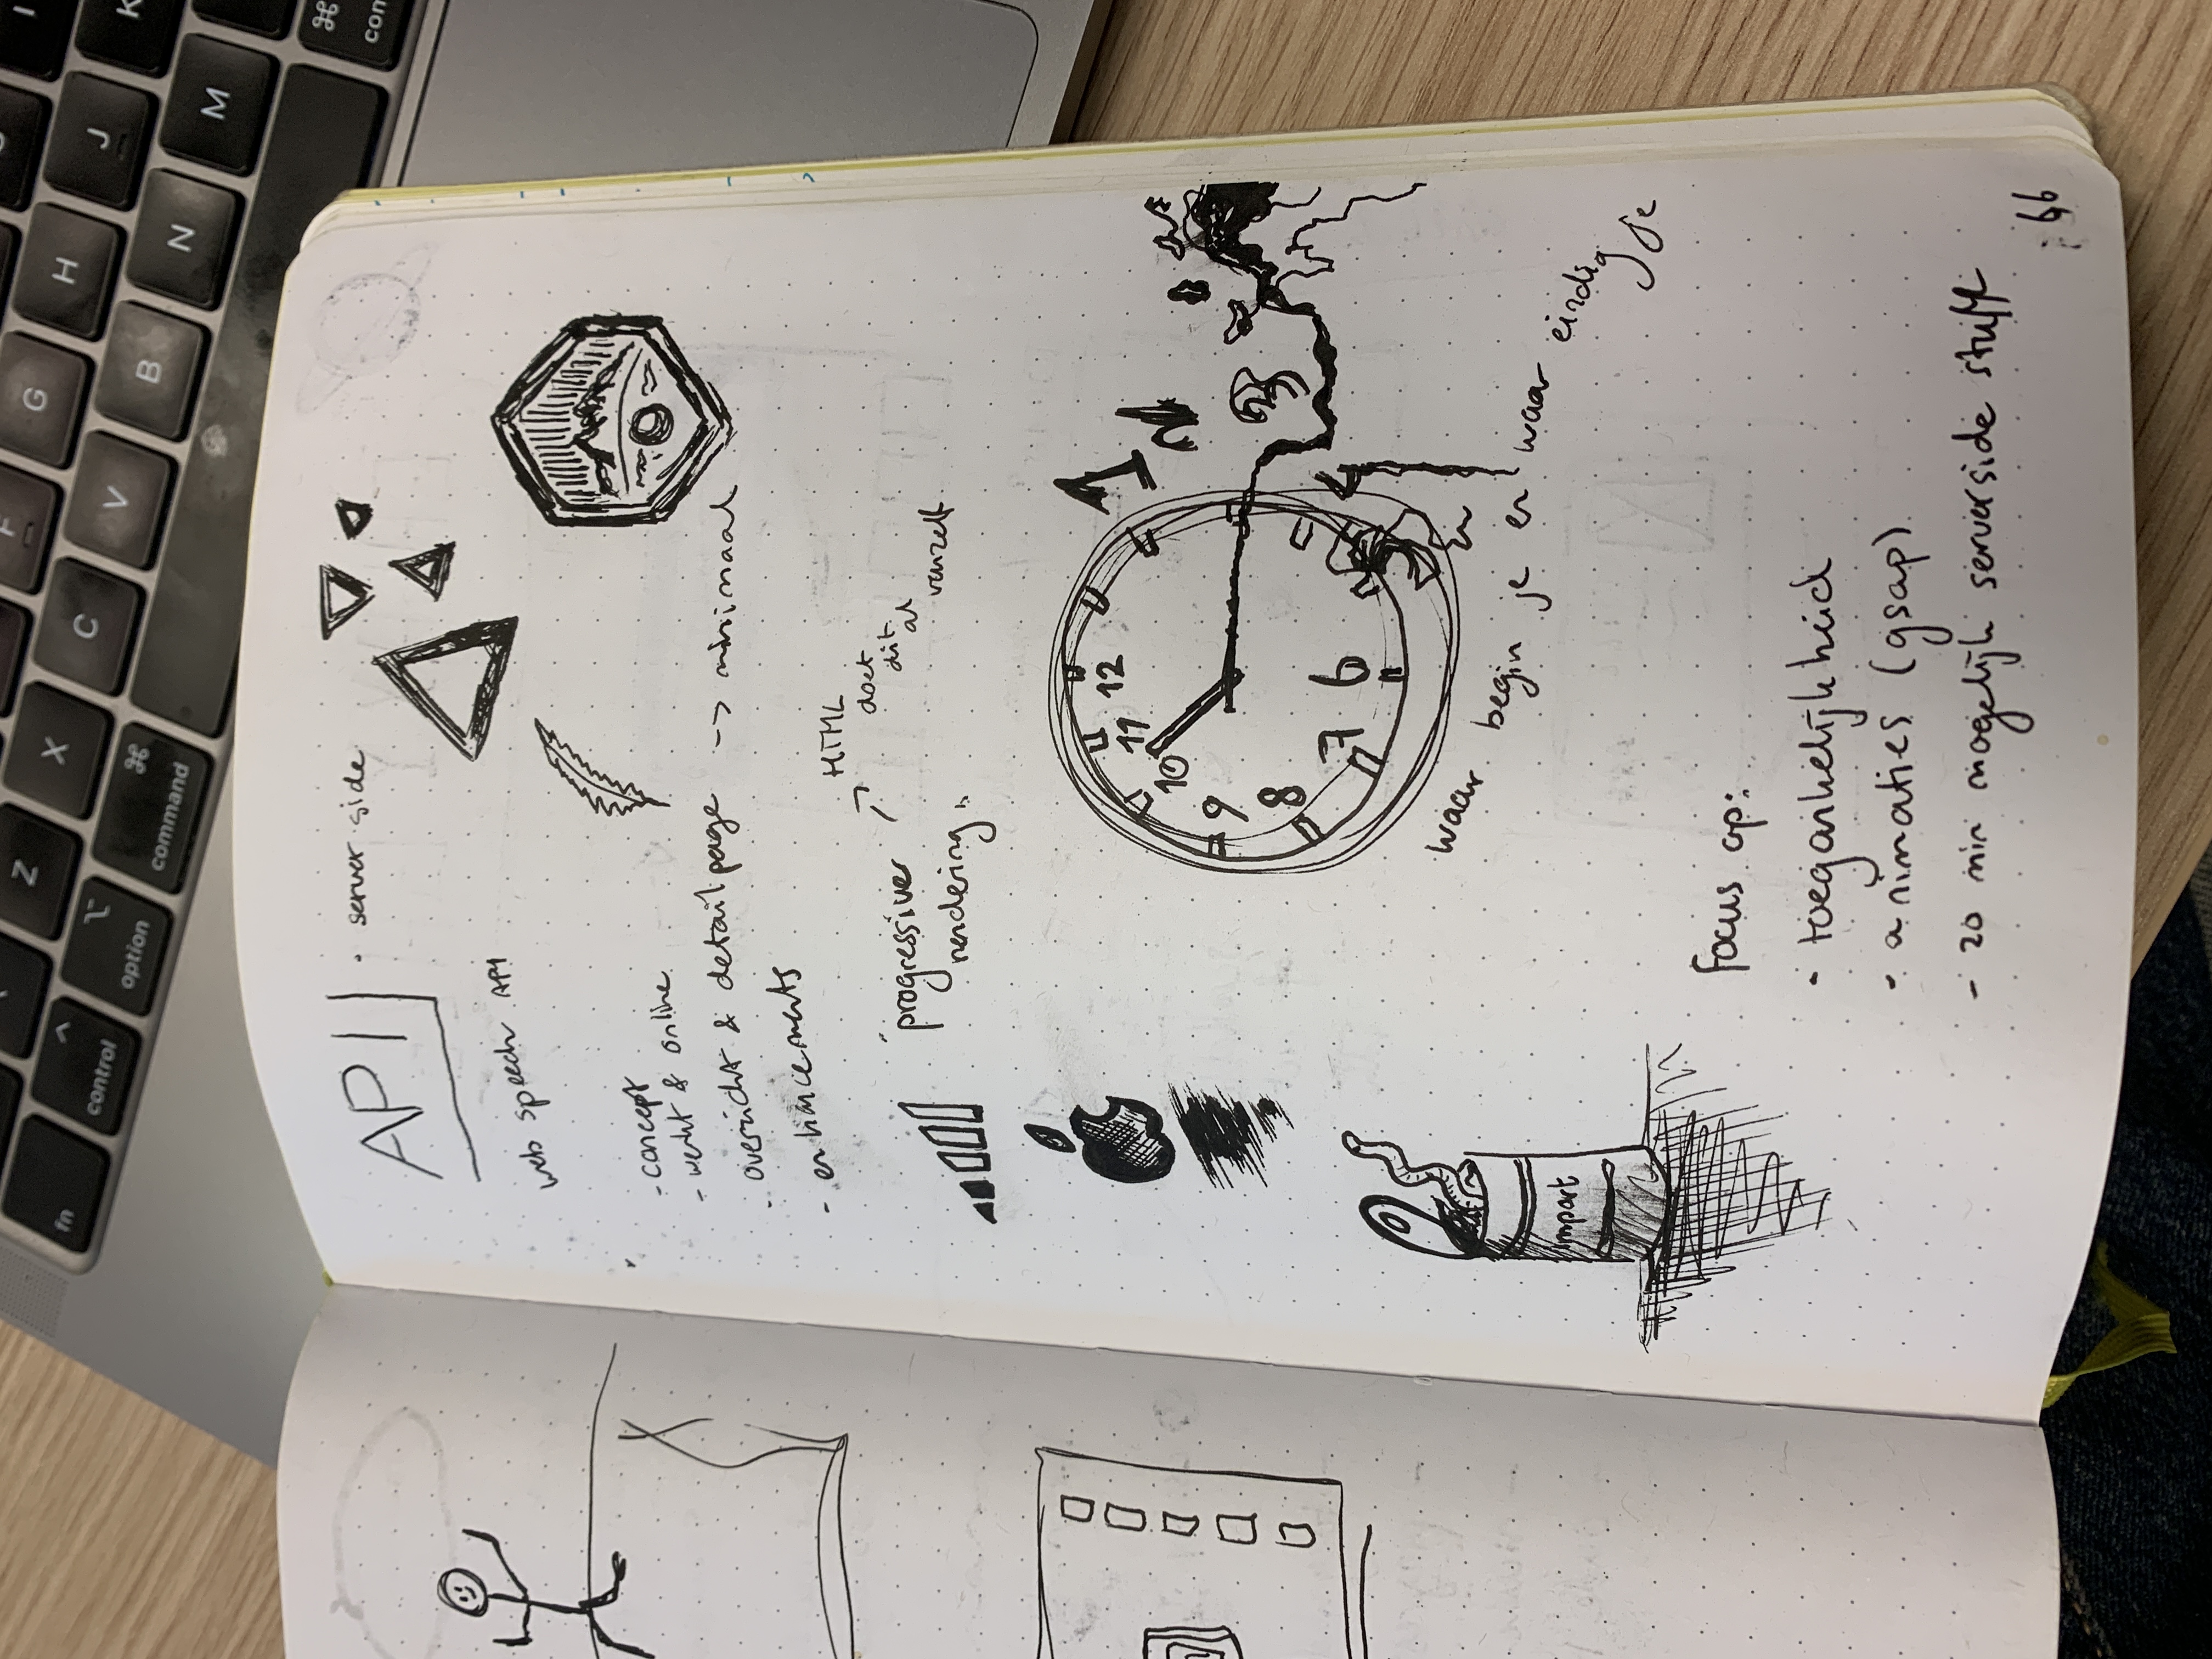 fn
control
option
command
Z
X
C
V
B
N
M
F
G
H
J
K
API
• server side
web speech API
- concept
- werkt & online
- overzicht & detailpage -> minimaal
- enhancements
"progressiver
rendering"
HTML
doet
dit
al
vanzelf
12
11
10
9
8
7
6
1
2
3
waar begin je en waar eindig je
import
Focus op:
- toegankelijkheid
- animaties (gsap)
- 20 min mogelijk serverside stuff
66